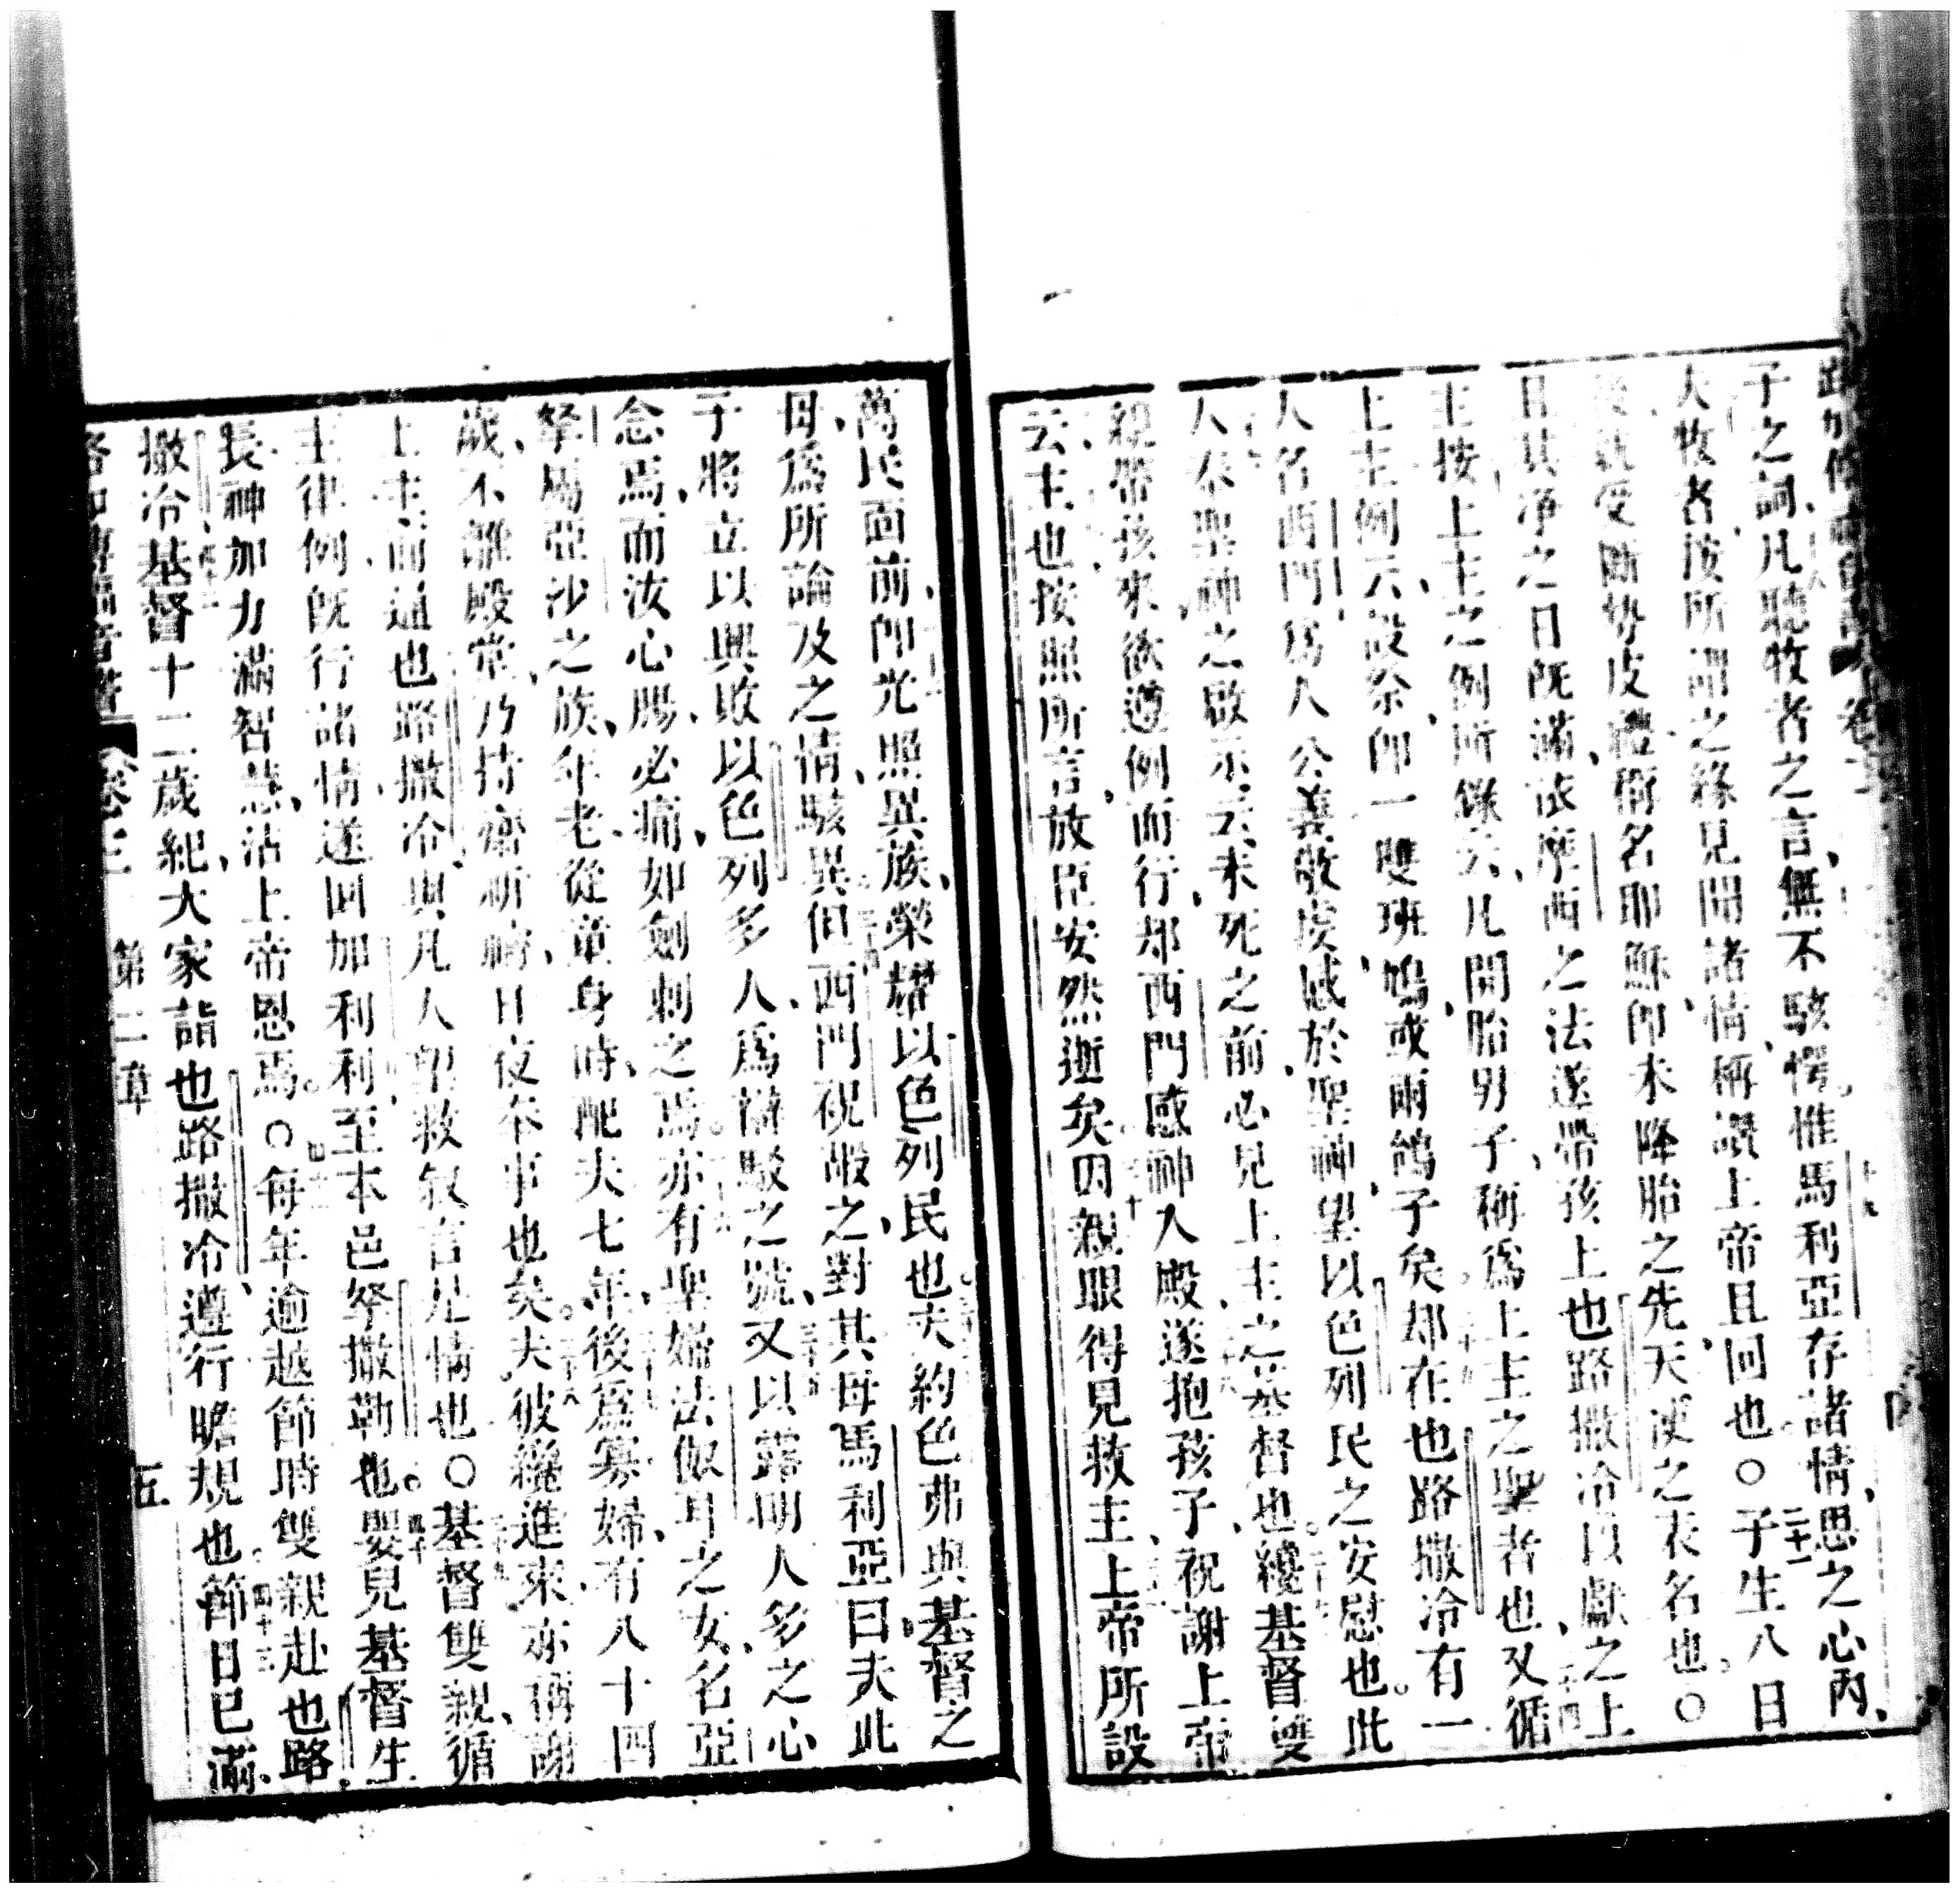 子之詞凡聽牧者之言無不駭愕惟馬利亞存諸情思之心內
夫牧者按所謂之緣見聞諸情稱讚上帝且回也○子生八日
受斷勢皮禮稱名耶穌卽未降胎之先天使之表名也○
日其淨之日旣滿依摩西之法遂帶孩上也路撒冷以獻之上
主按上主之例所錄云凡開胎男子稱爲上主之聖者也又循
上主例云設祭卽一雙班鳩或兩鴿子矣却在也路撒冷有一
人名西門爲人公義敬虔感於聖神望以色列民之安慰也此
人奉聖神之啟示云未死之前必見上主之基督也纔基督雙
親帶孩來欲遵例而行却西門感神入殿遂抱孩子祝謝上帝
云主也按照所言放臣安然逝矣因親眼得見救主上帝所設
萬民面前卽光照異族榮耀以色列民也夫約色弗與基督之
母爲所論及之情駭異但西門祝嘏之對其母馬利亞曰夫此
子將立以興敗以色列多人爲辯駁之號又以露明人多之心
念焉而汝心腸必痛如劍刺之焉亦有聖婦法伲耳之女名亞
拏屬亞沙之族年老從童身時配夫七年後爲寡婦有八十四
歲不離殿堂乃持齋祈禱日夜奉事也矣夫彼纔進來亦稱謝
上主而通也路撒冷與凡人望救敘言是情也○基督雙親循
主律例旣行諸情遂回加利利至本邑拏撒勒也嬰兒基督生
長神加力滿智慧沾上帝恩焉○每年逾越節時雙親赴也路
撒冷基督十二歲紀大家詣也路撒冷遵行瞻規也節日已滿
路加傳福音書 卷三 第二章 五